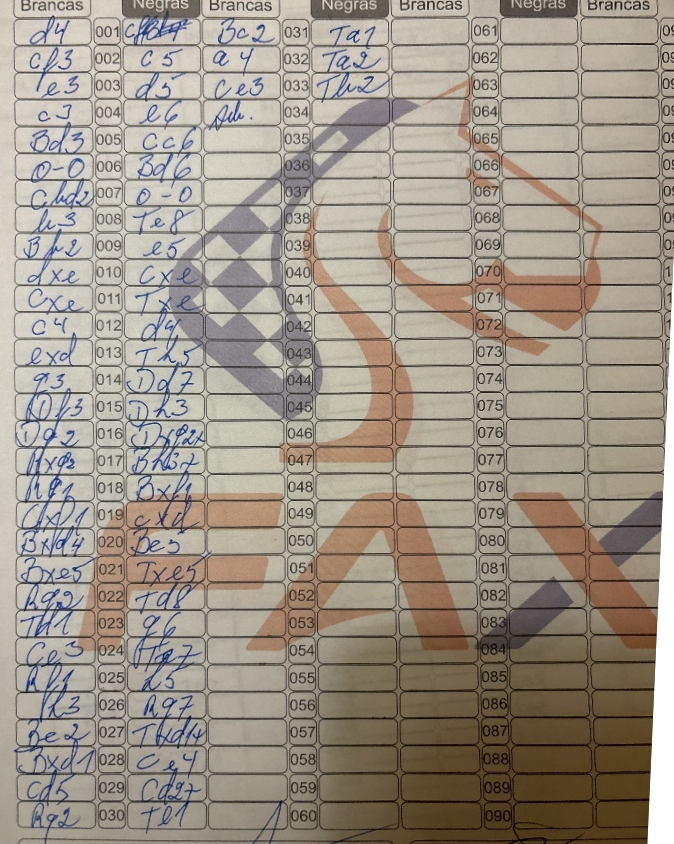 Brancas Negras Brancas Negras Brancas Negras Brancas
d4 001 Bc2 031 Ta1 061
cf3 002 c5 a4 032 Ta2 062
e3 003 d5 Ce3 033 Tb2 063
c3 004 e6 Ab. 034 064
Bd3 005 Cc6 035 065
0-0 006 Bd6 036 066
Cbd2 007 0-0 037 067
b3 008 Te8 038 068
Bb2 009 e5 039 069
dxe 010 Cxe 040 070
Cxe 011 Txe 041 071
c4 012 d4 042 072
exd 013 Th5 043 073
g3 014 Dd7 044 074
Df3 015 Dh3 045 075
Dg2 016 Dxg2+ 046 076
Rxg2 017 Bh3+ 047 077
Rg1 018 Bxf1 048 078
Cxf1 019 cxd 049 079
Bxd4 020 Be5 050 080
Bxe5 021 Txe5 051 081
Rg2 022 Td8 052 082
Td1 023 g6 053 083
Ce3 024 054 084
Rf1 025 h5 055 085
f3 026 Rg7 056 086
Be2 027 Txd1+ 057 087
Bxd1 028 Ce4 058 088
Cd5 029 Cd2+ 059 089
Rg2 030 Te1 060 090
FAX